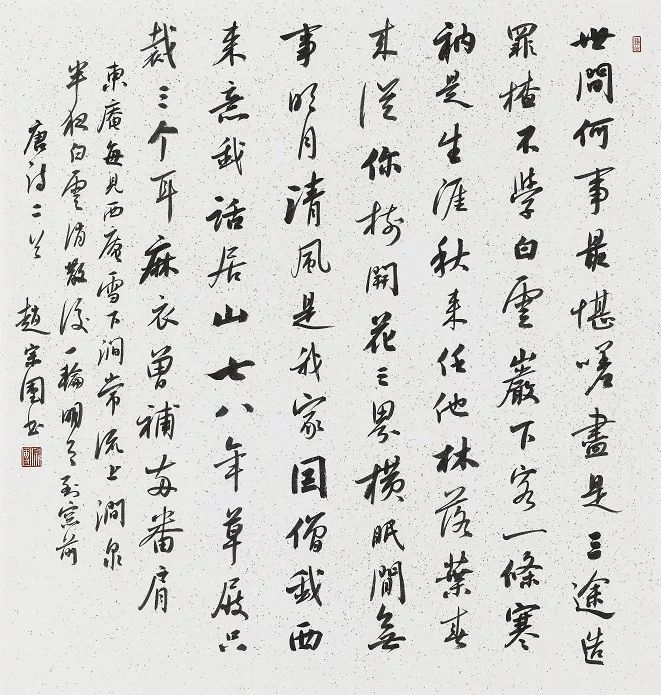 世間何事最堪嗟盡是三途造
罪楂不學白雲巖下客一條寒
衲是生涯秋来任他林落葉春
来從你樹開花三界橫眠閒無
事明月清風是我家因僧我西
来意我話居山七八年草屐只
裁三个耳麻衣曾補两番肩
東庵每見西庵雪下澗常流上澗泉
半夜白雲消散後一輪明月到窓前
唐诗二首 趙宗国书